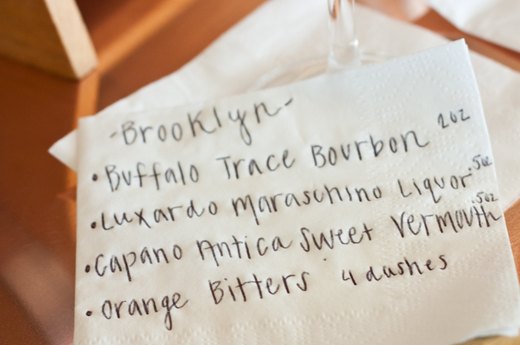 -Brooklyn-
• Buffalo Trace Bourbon 2oz
• Luxardo Maraschino Liquor .5oz
• Capano Antica Sweet Vermouth .5oz
• Orange Bitters 4 dashes